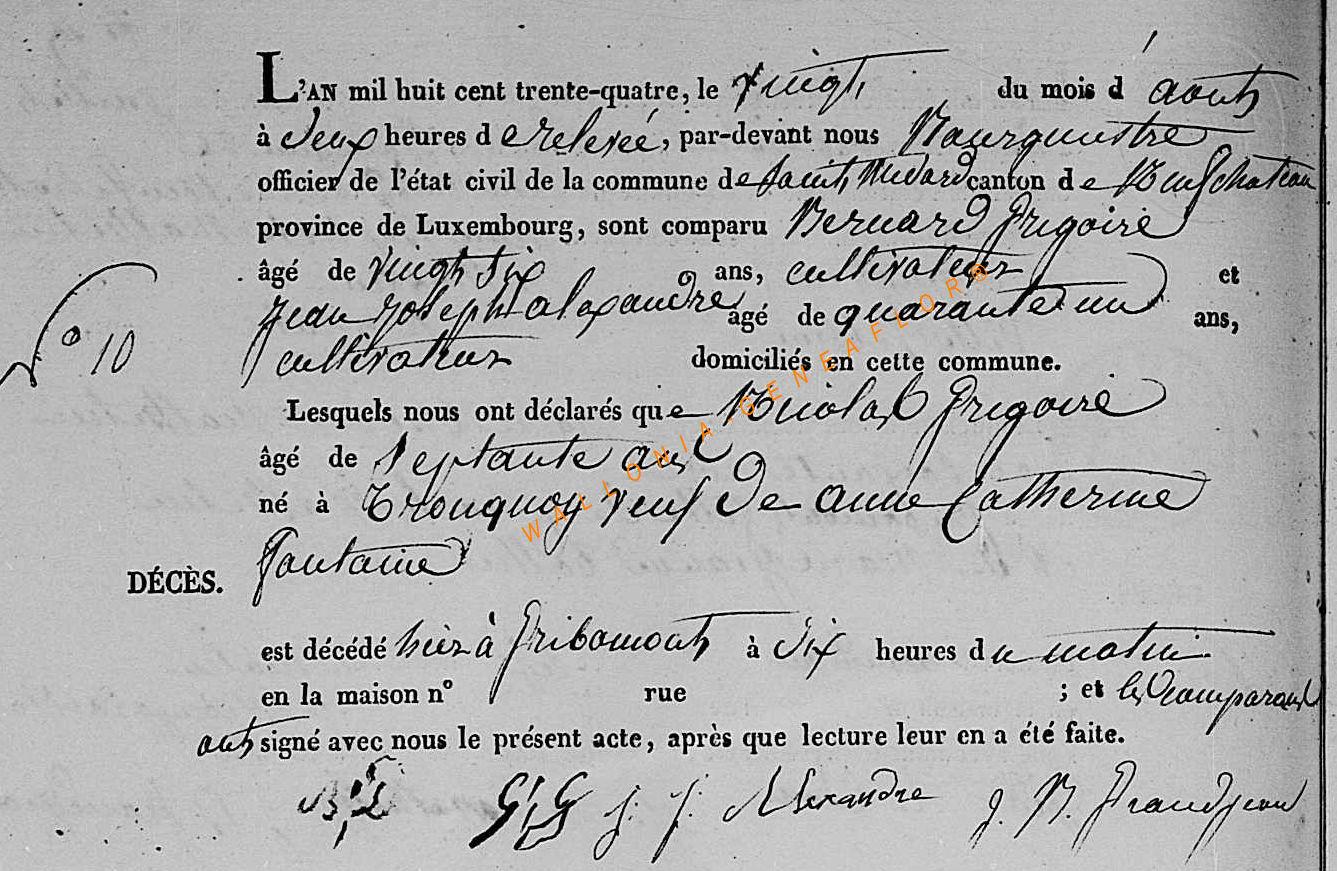 L'AN mil huit cent trente-quatre, le vingt du mois d'aout
à deux heures de relevée, par-devant nous Bourguestre
officier de l'état civil de la commune de Saint Medard canton de Neufchateau
province de Luxembourg, sont comparu Bernard Grigoire
âgé de vingt six ans, cultivateur et
Jean Joseph alexandre âgé de quarante un ans,
N° 10
cultivateur domiciliés en cette commune.
Lesquels nous ont déclarés que Nicolas Grigoire
âgé de septante ans
né à Tronquoy veuf de anne Catherine
fontaine
DÉCÈS.
est décédé hier à Gribomont à six heures du matin
en la maison n° rue ; et les Comparans
ont signé avec nous le présent acte, après que lecture leur en a été faite.
J. J. Alexandre J. N. Grandjean
WALLONIA-GENEAFLORB